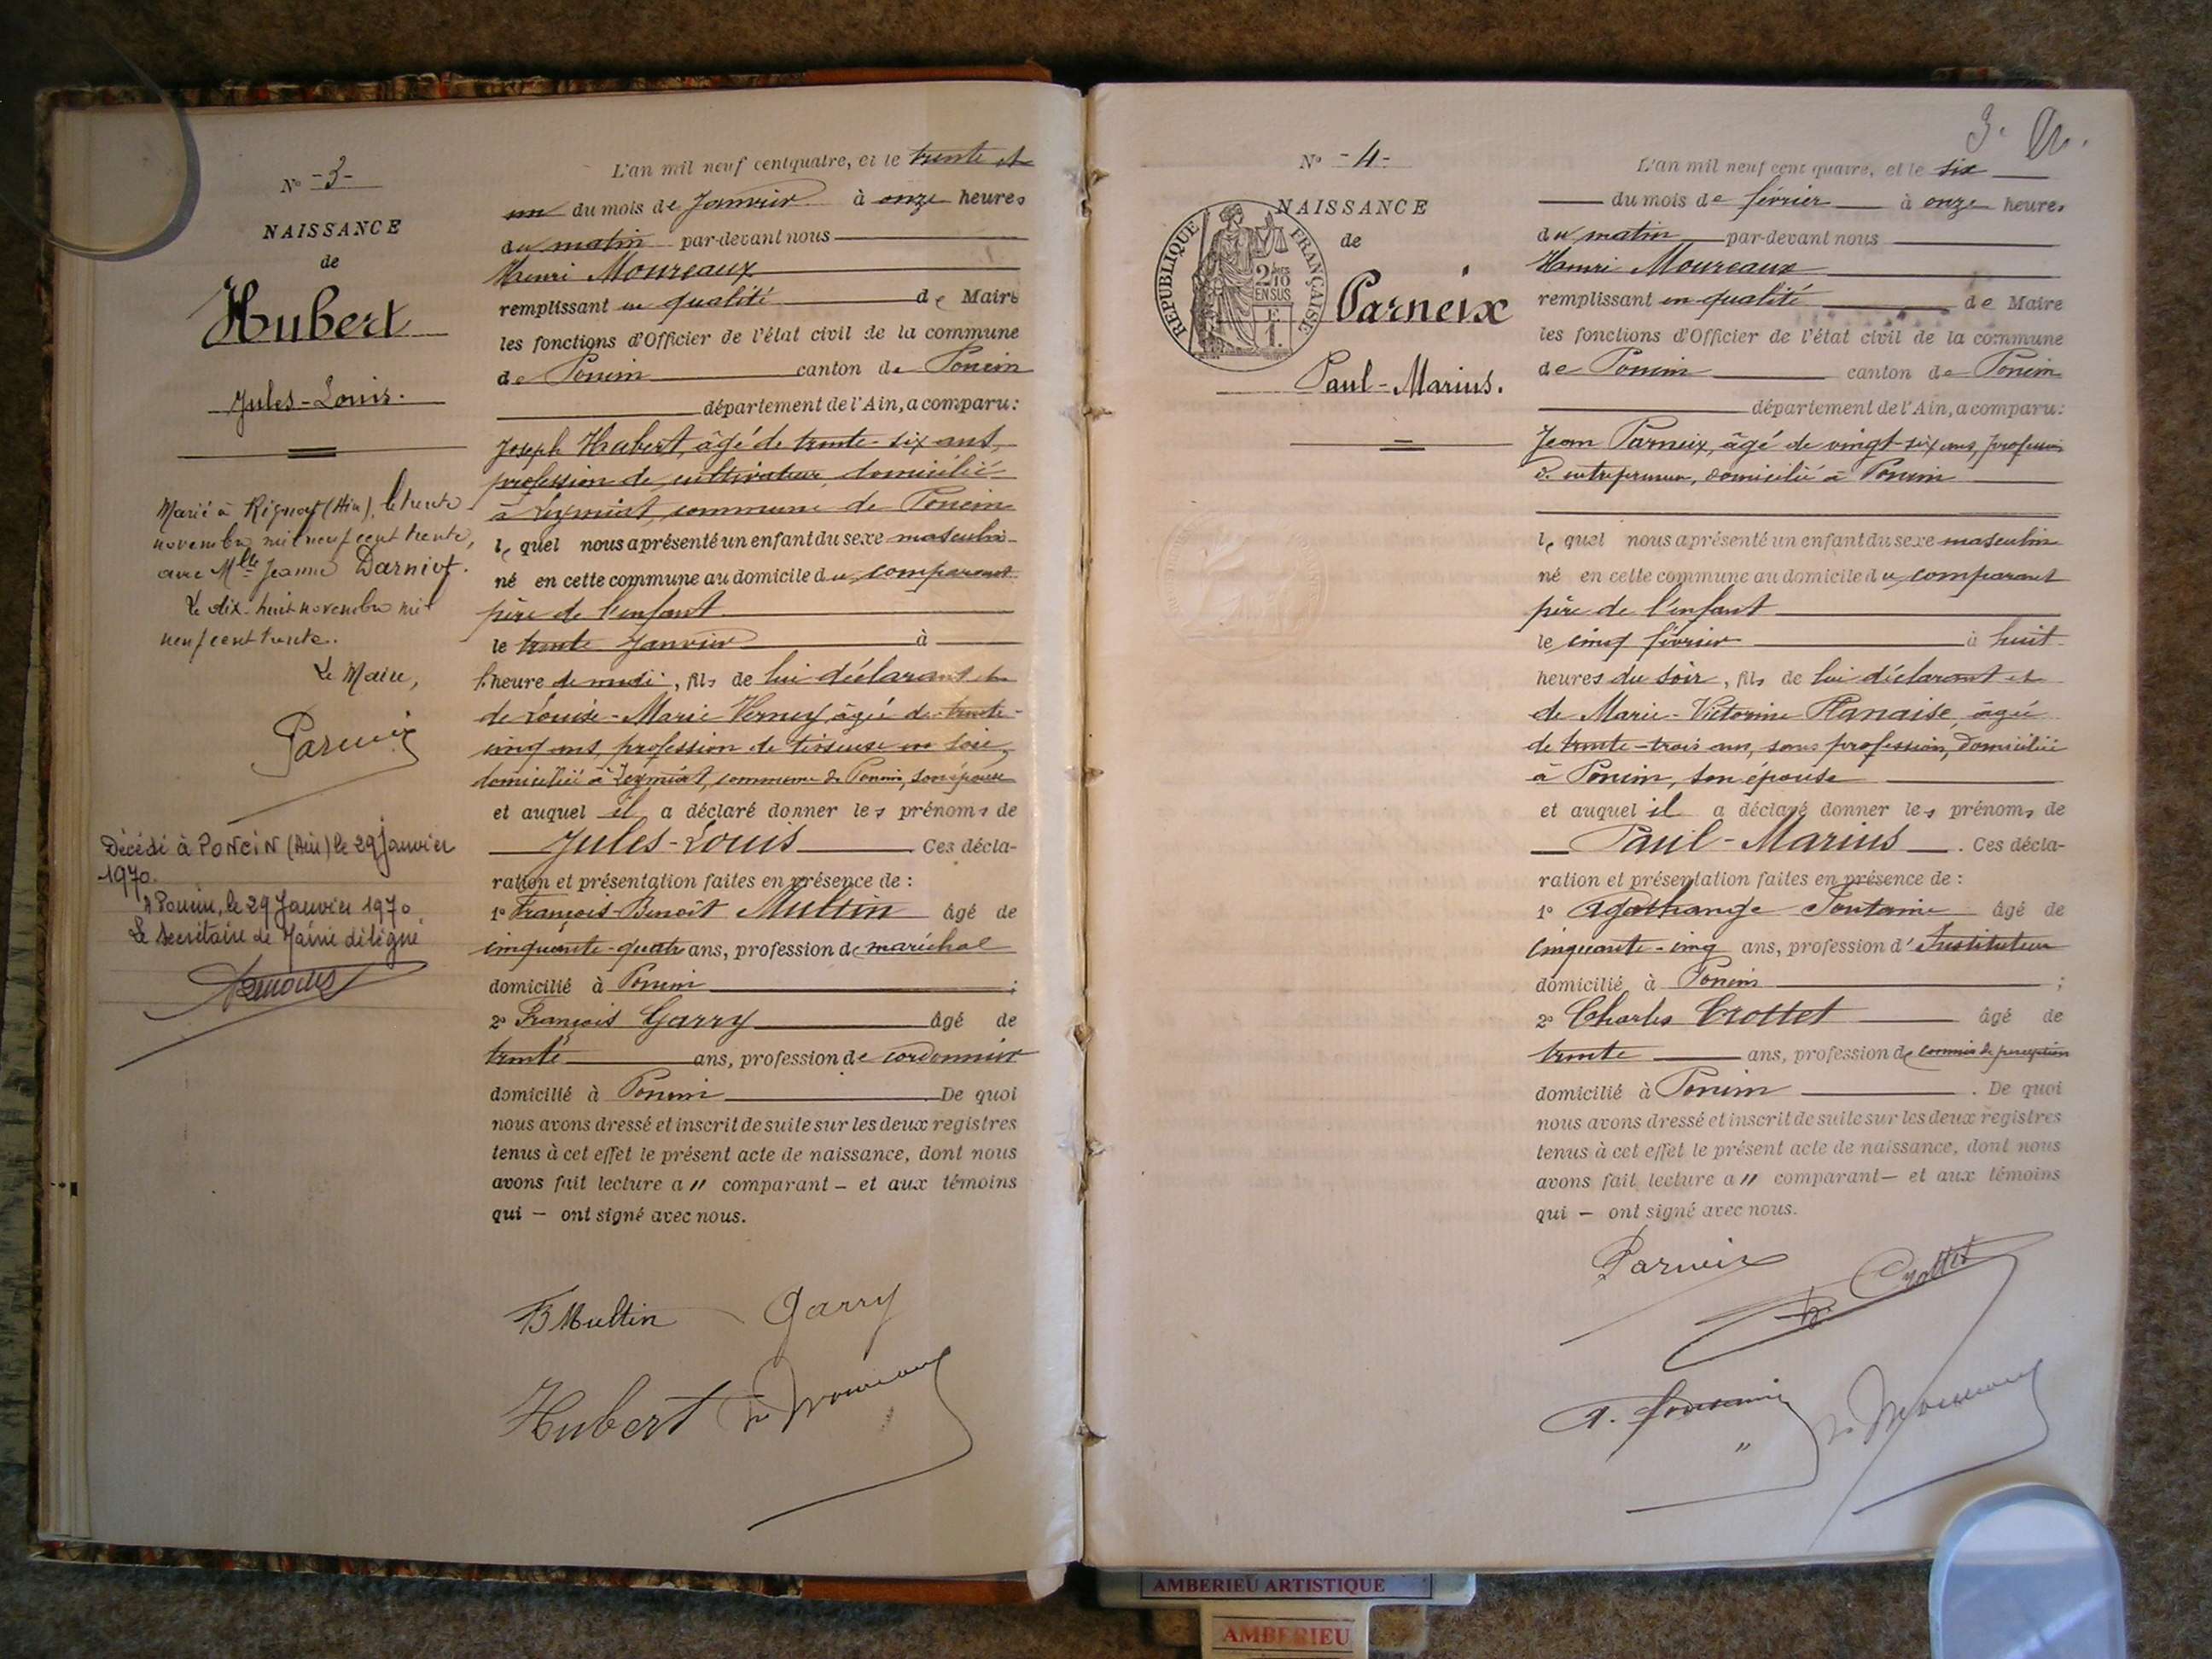 N° -3-
NAISSANCE
de
Hubert
Jules-Louis.
Marié à (Ain), le trente
novembre mil neuf cent trente,
avec Mlle Jeanne Darniot.
Le dix-huit novembre mil
neuf cent trente.
Le Maire,
Parneix
Décédé à PONCIN (Ain) le 29 Janvier
1970.
A Poncin, le 29 Janvier 1970.
Le Secrétaire de Mairie délégué
L'an mil neuf cent quatre, et le trente et
un du mois de Janvier à onze heures
du matin par-devant nous
Henri Moureaux
remplissant en qualité de Maire
les fonctions d'Officier de l'état civil de la commune
de Poncin canton de Poncin
département de l'Ain, a comparu:
Joseph Hubert, âgé de trente-six ans,
profession de cultivateur, domicilié
à Leymiat, commune de Poncin
lequel nous a présenté un enfant du sexe masculin
né en cette commune au domicile du comparant
père de l'enfant
le trente Janvier à
l'heure de midi, fils de lui déclarant et
de Louise-Marie Verney, âgée de trente-
cinq ans, profession de tisseuse en soie,
domiciliée à Leymiat, commune de Poncin, son épouse
et auquel il a déclaré donner les prénoms de
Jules-Louis. Ces décla-
ration et présentation faites en présence de :
1° François-Benoît Multin âgé de
cinquante-quatre ans, profession de maréchal
domicilié à Poncin ;
2° François Garry âgé de
trente ans, profession de cordonnier
domicilié à Poncin. De quoi
nous avons dressé et inscrit de suite sur les deux registres
tenus à cet effet le présent acte de naissance, dont nous
avons fait lecture a" comparant - et aux témoins
qui - ont signé avec nous.
B Multin Garry
Hubert H. Moureaux
3.
N° -4-
NAISSANCE
de
Parneix
Paul-Marius.
REPUBLIQUE FRANÇAISE
2/10
EN SUS
F
1.
L'an mil neuf cent quatre, et le six
du mois de février à onze heures
du matin par-devant nous
Henri Moureaux
remplissant en qualité de Maire
les fonctions d'Officier de l'état civil de la commune
de Poncin canton de Poncin
département de l'Ain, a comparu:
Jean Parneix, âgé de vingt-six ans, profession
d'entrepreneur, domicilié à Poncin
lequel nous a présenté un enfant du sexe masculin
né en cette commune au domicile du comparant
père de l'enfant
le cinq février à huit
heures du soir, fils de lui déclarant et
de Marie-Victorine Planaise, âgée
de trente-trois ans, sans profession, domiciliée
à Poncin, son épouse
et auquel il a déclaré donner les prénoms de
Paul-Marius. Ces décla-
ration et présentation faites en présence de :
1° Agathange Fontaine âgé de
cinquante-cinq ans, profession d'Instituteur
domicilié à Poncin ;
2° Charles Crottet âgé de
trente ans, profession de commis de perception
domicilié à Poncin. De quoi
nous avons dressé et inscrit de suite sur les deux registres
tenus à cet effet le présent acte de naissance, dont nous
avons fait lecture a" comparant - et aux témoins
qui - ont signé avec nous.
Parneix
Crottet
A. Fontaine H. Moureaux
AMBERIEU ARTISTIQUE
AMBERIEU